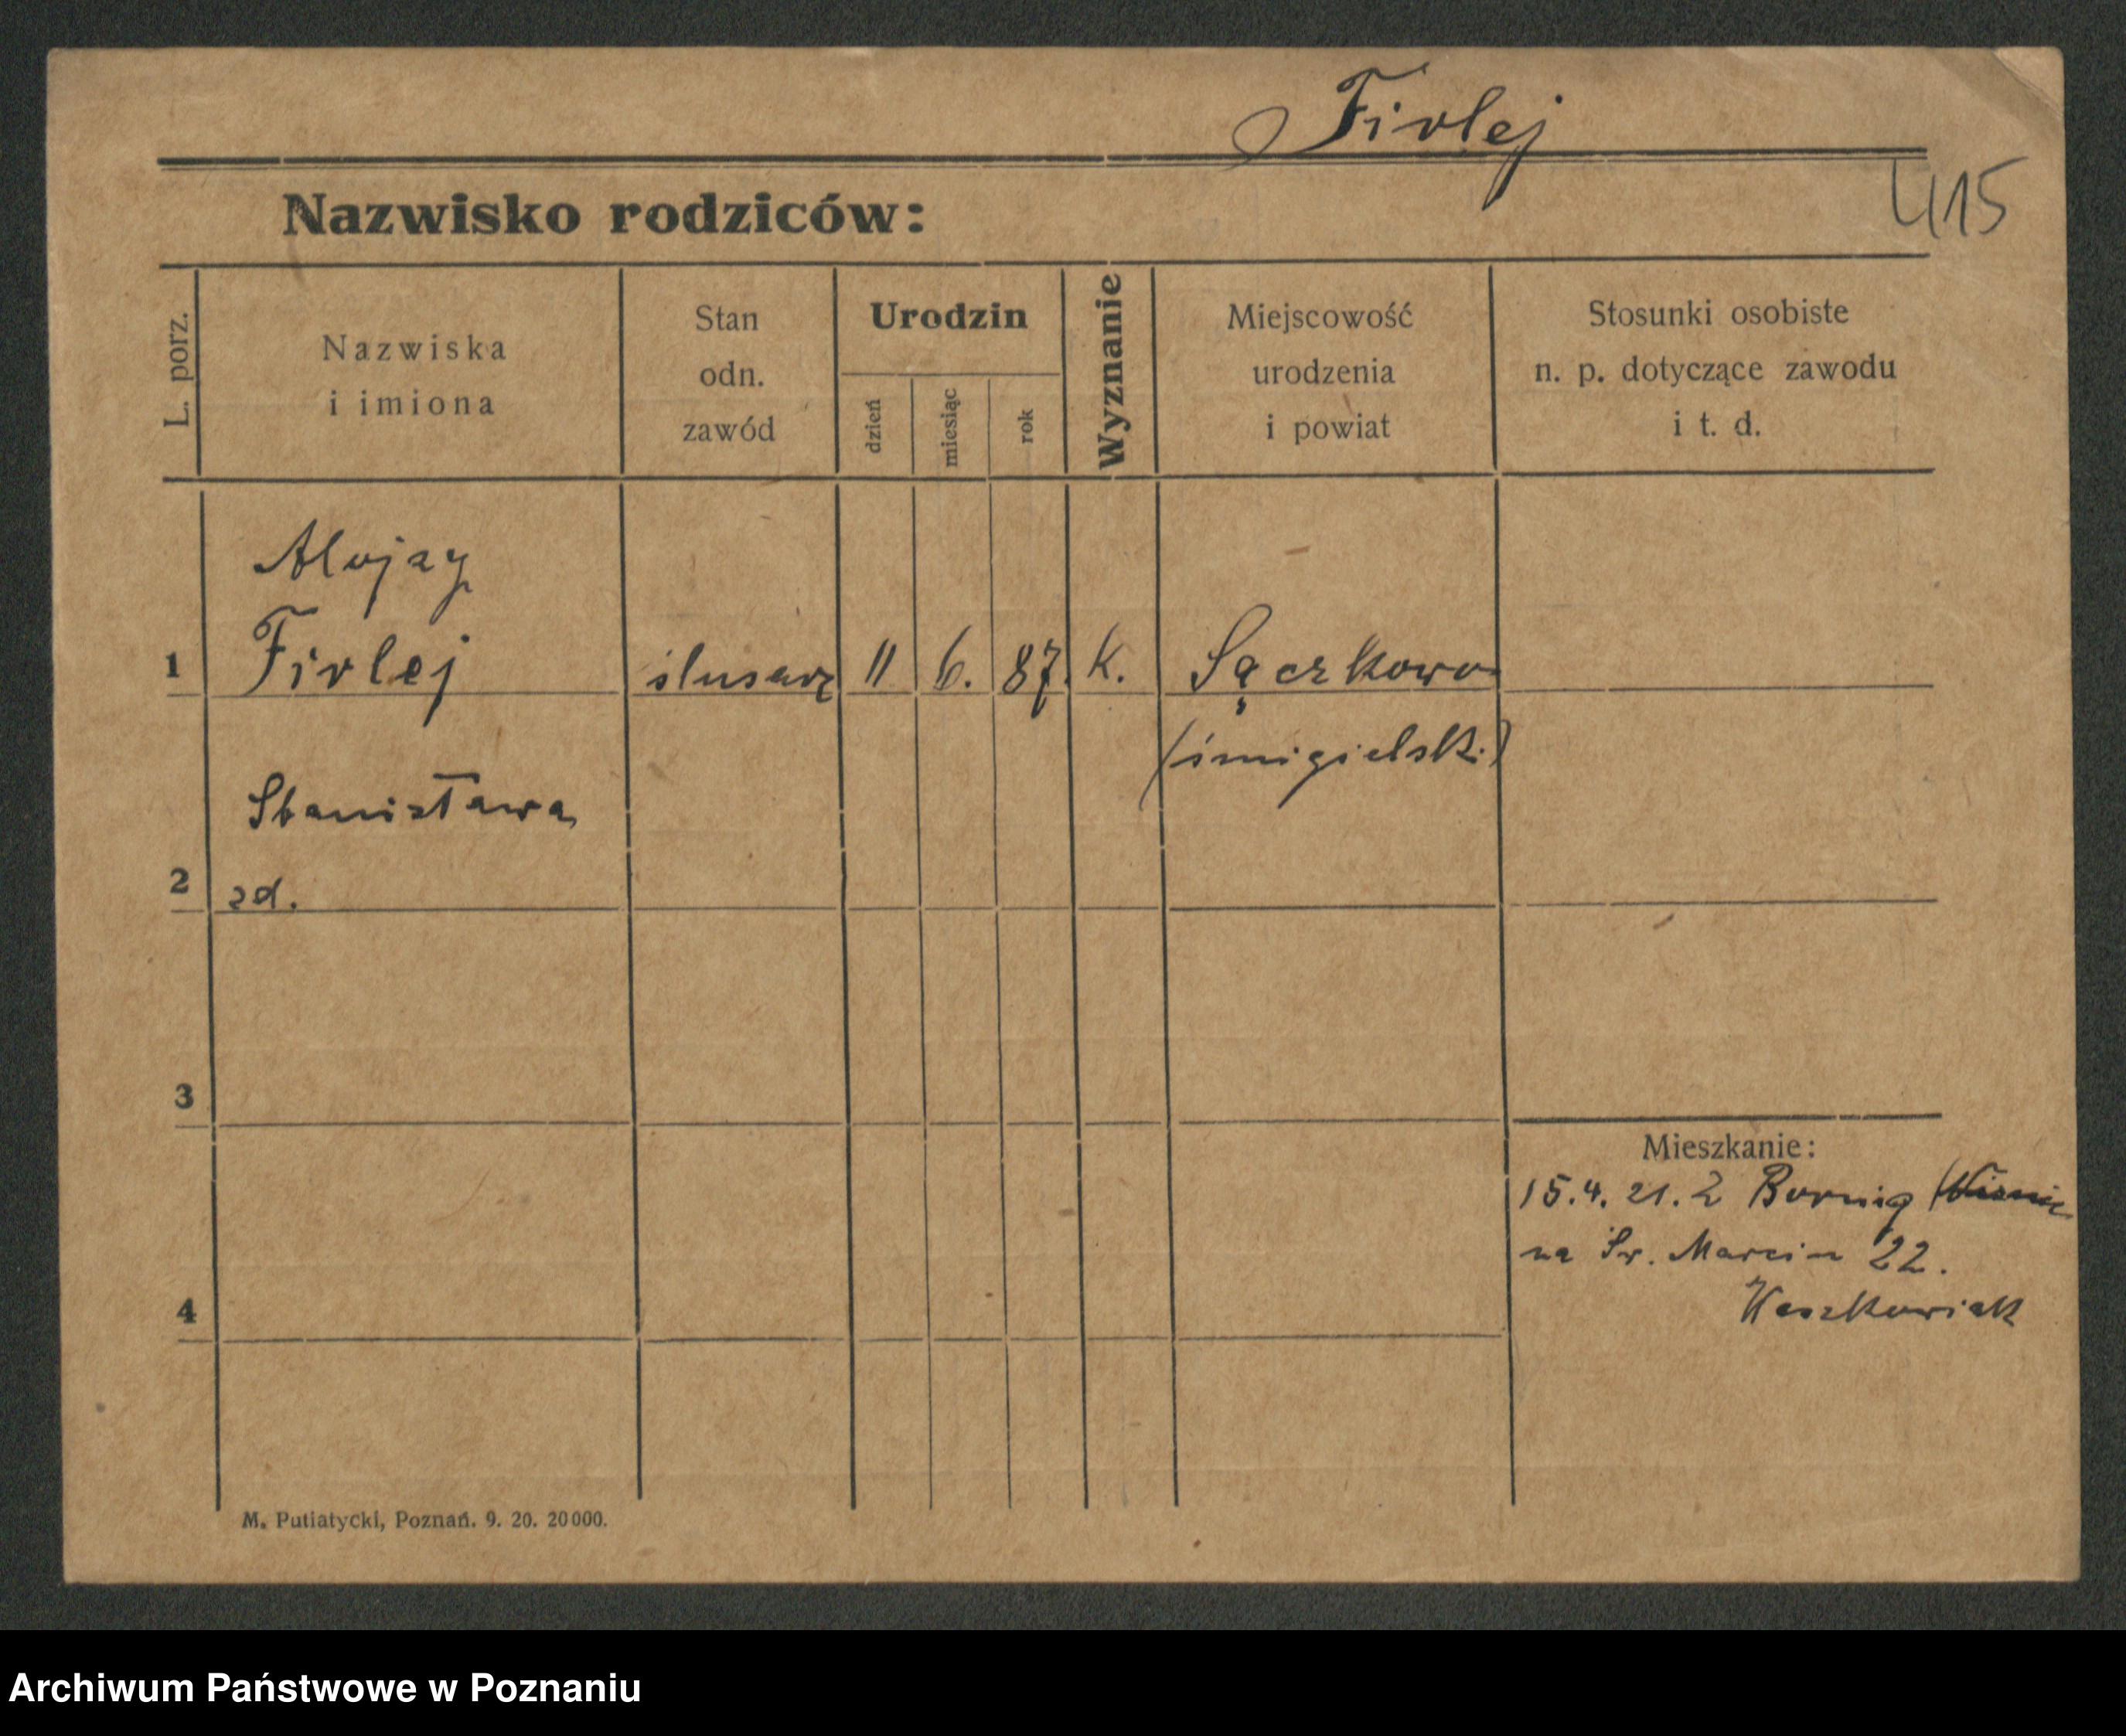 Firlej
415
Nazwisko rodziców:
L. porz.
Nazwiska
i imiona
Stan
odn.
zawód
Urodzin
dzień
miesiąc
rok
Wyznanie
Miejscowość
urodzenia
i powiat
Stosunki osobiste
n. p. dotyczące zawodu
i t. d.
1
Alojzy
Firlej
ślusarz
11
6.
87.
K.
Sączkowo
(śmigielsk.)
2
Stanisława
zd.
3
4
Mieszkanie:
15.4.21. z
na Św. Marcin 22.
Waszkowiak
M. Putiatycki, Poznań. 9. 20. 20000.
Archiwum Państwowe w Poznaniu